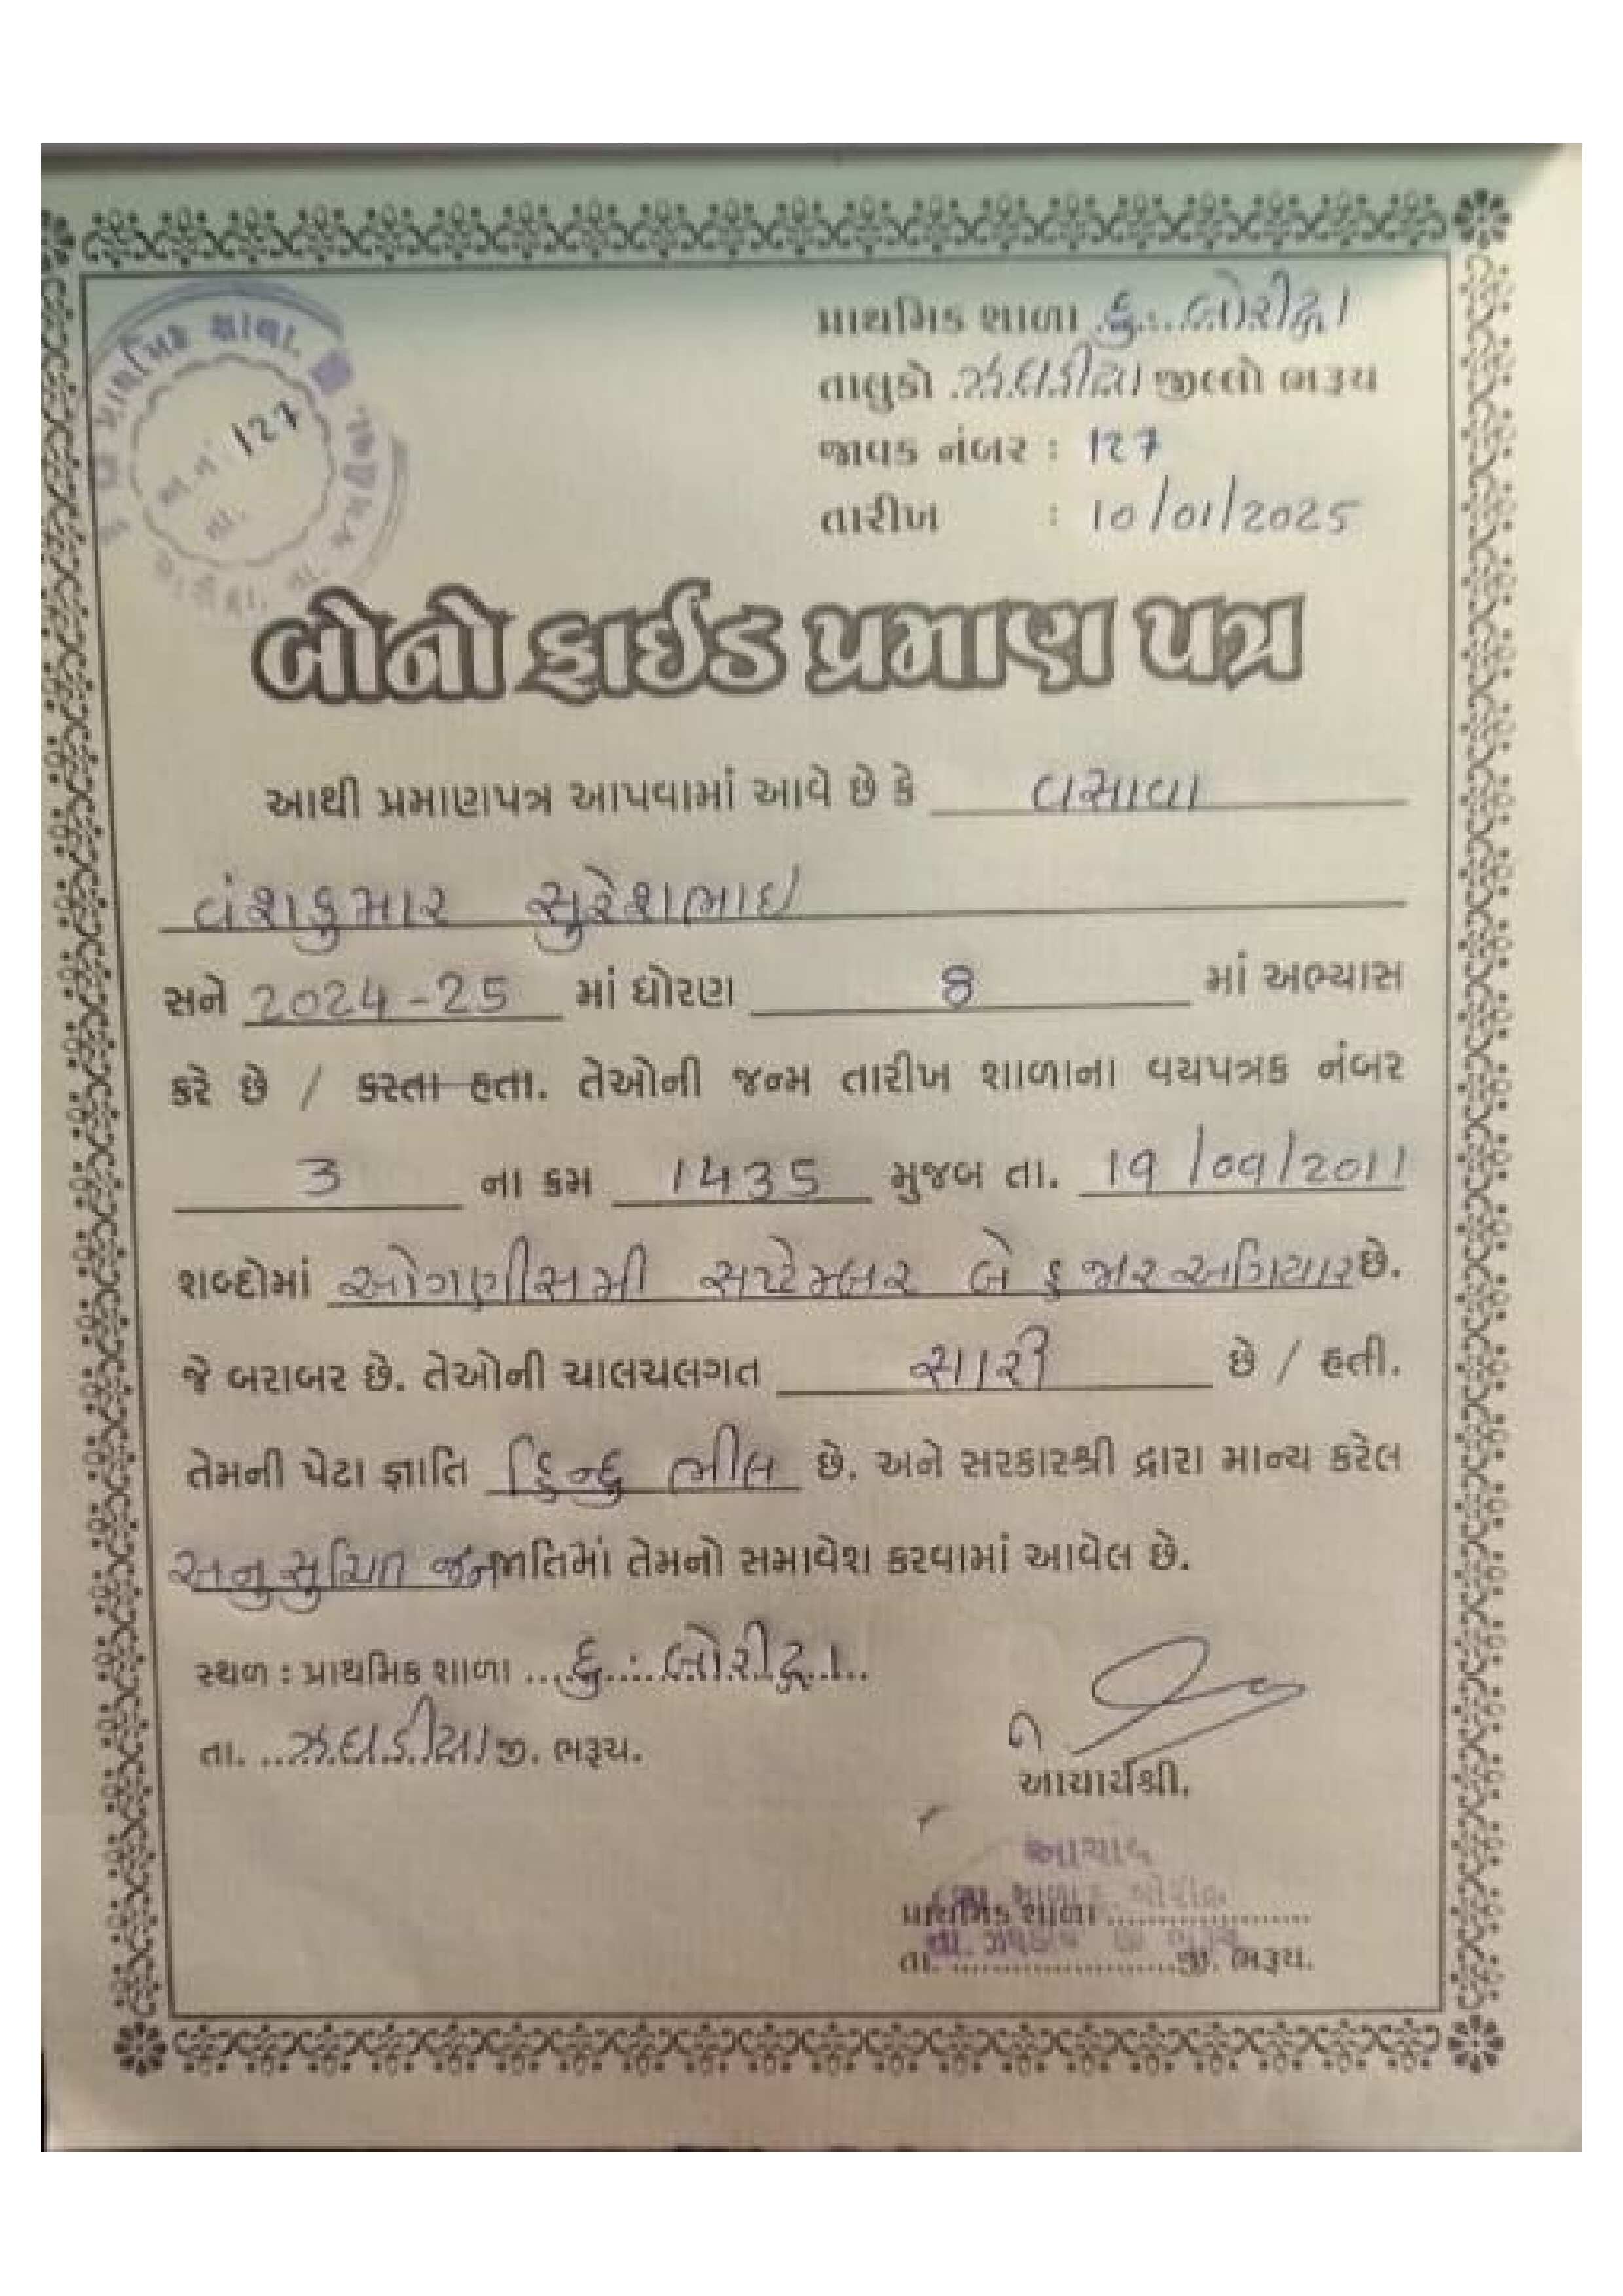 પ્રાથમિક શાળા દુ. બોરીદ્રા
તાલુકો ઝઘડીયા જીલ્લો ભરૂચ
જાવક નંબર : 127
તારીખ : 10/01/2025
પ્રાથમિક શાળા
જા.નં. 127
તા.
બોનો ફાઈડ પ્રમાણ પત્ર
આથી પ્રમાણપત્ર આપવામાં આવે છે કે વસાવા
વંશકુમાર સુરેશભાઇ
સને 2024-25 માં ધોરણ 8 માં અભ્યાસ
કરે છે / કરતા હતા. તેઓની જન્મ તારીખ શાળાના વયપત્રક નંબર
3 ના ક્રમ 1435 મુજબ તા. 19/09/2011
શબ્દોમાં ઓગણીસમી સપ્ટેમ્બર બે હજાર અગિયાર છે.
જે બરાબર છે. તેઓની ચાલચલગત સારી છે / હતી.
તેમની પેટા જ્ઞાતિ હિન્દુ ભીલ છે. અને સરકારશ્રી દ્વારા માન્ય કરેલ
અનુસુચિત જનજાતિમાં તેમનો સમાવેશ કરવામાં આવેલ છે.
સ્થળ : પ્રાથમિક શાળા દુ. બોરીદ્રા
તા. ઝઘડીયા જી. ભરૂચ.
આચાર્યશ્રી.
આચાર્ય
પ્રાથમિક શાળા
તા. જી. ભરૂચ.